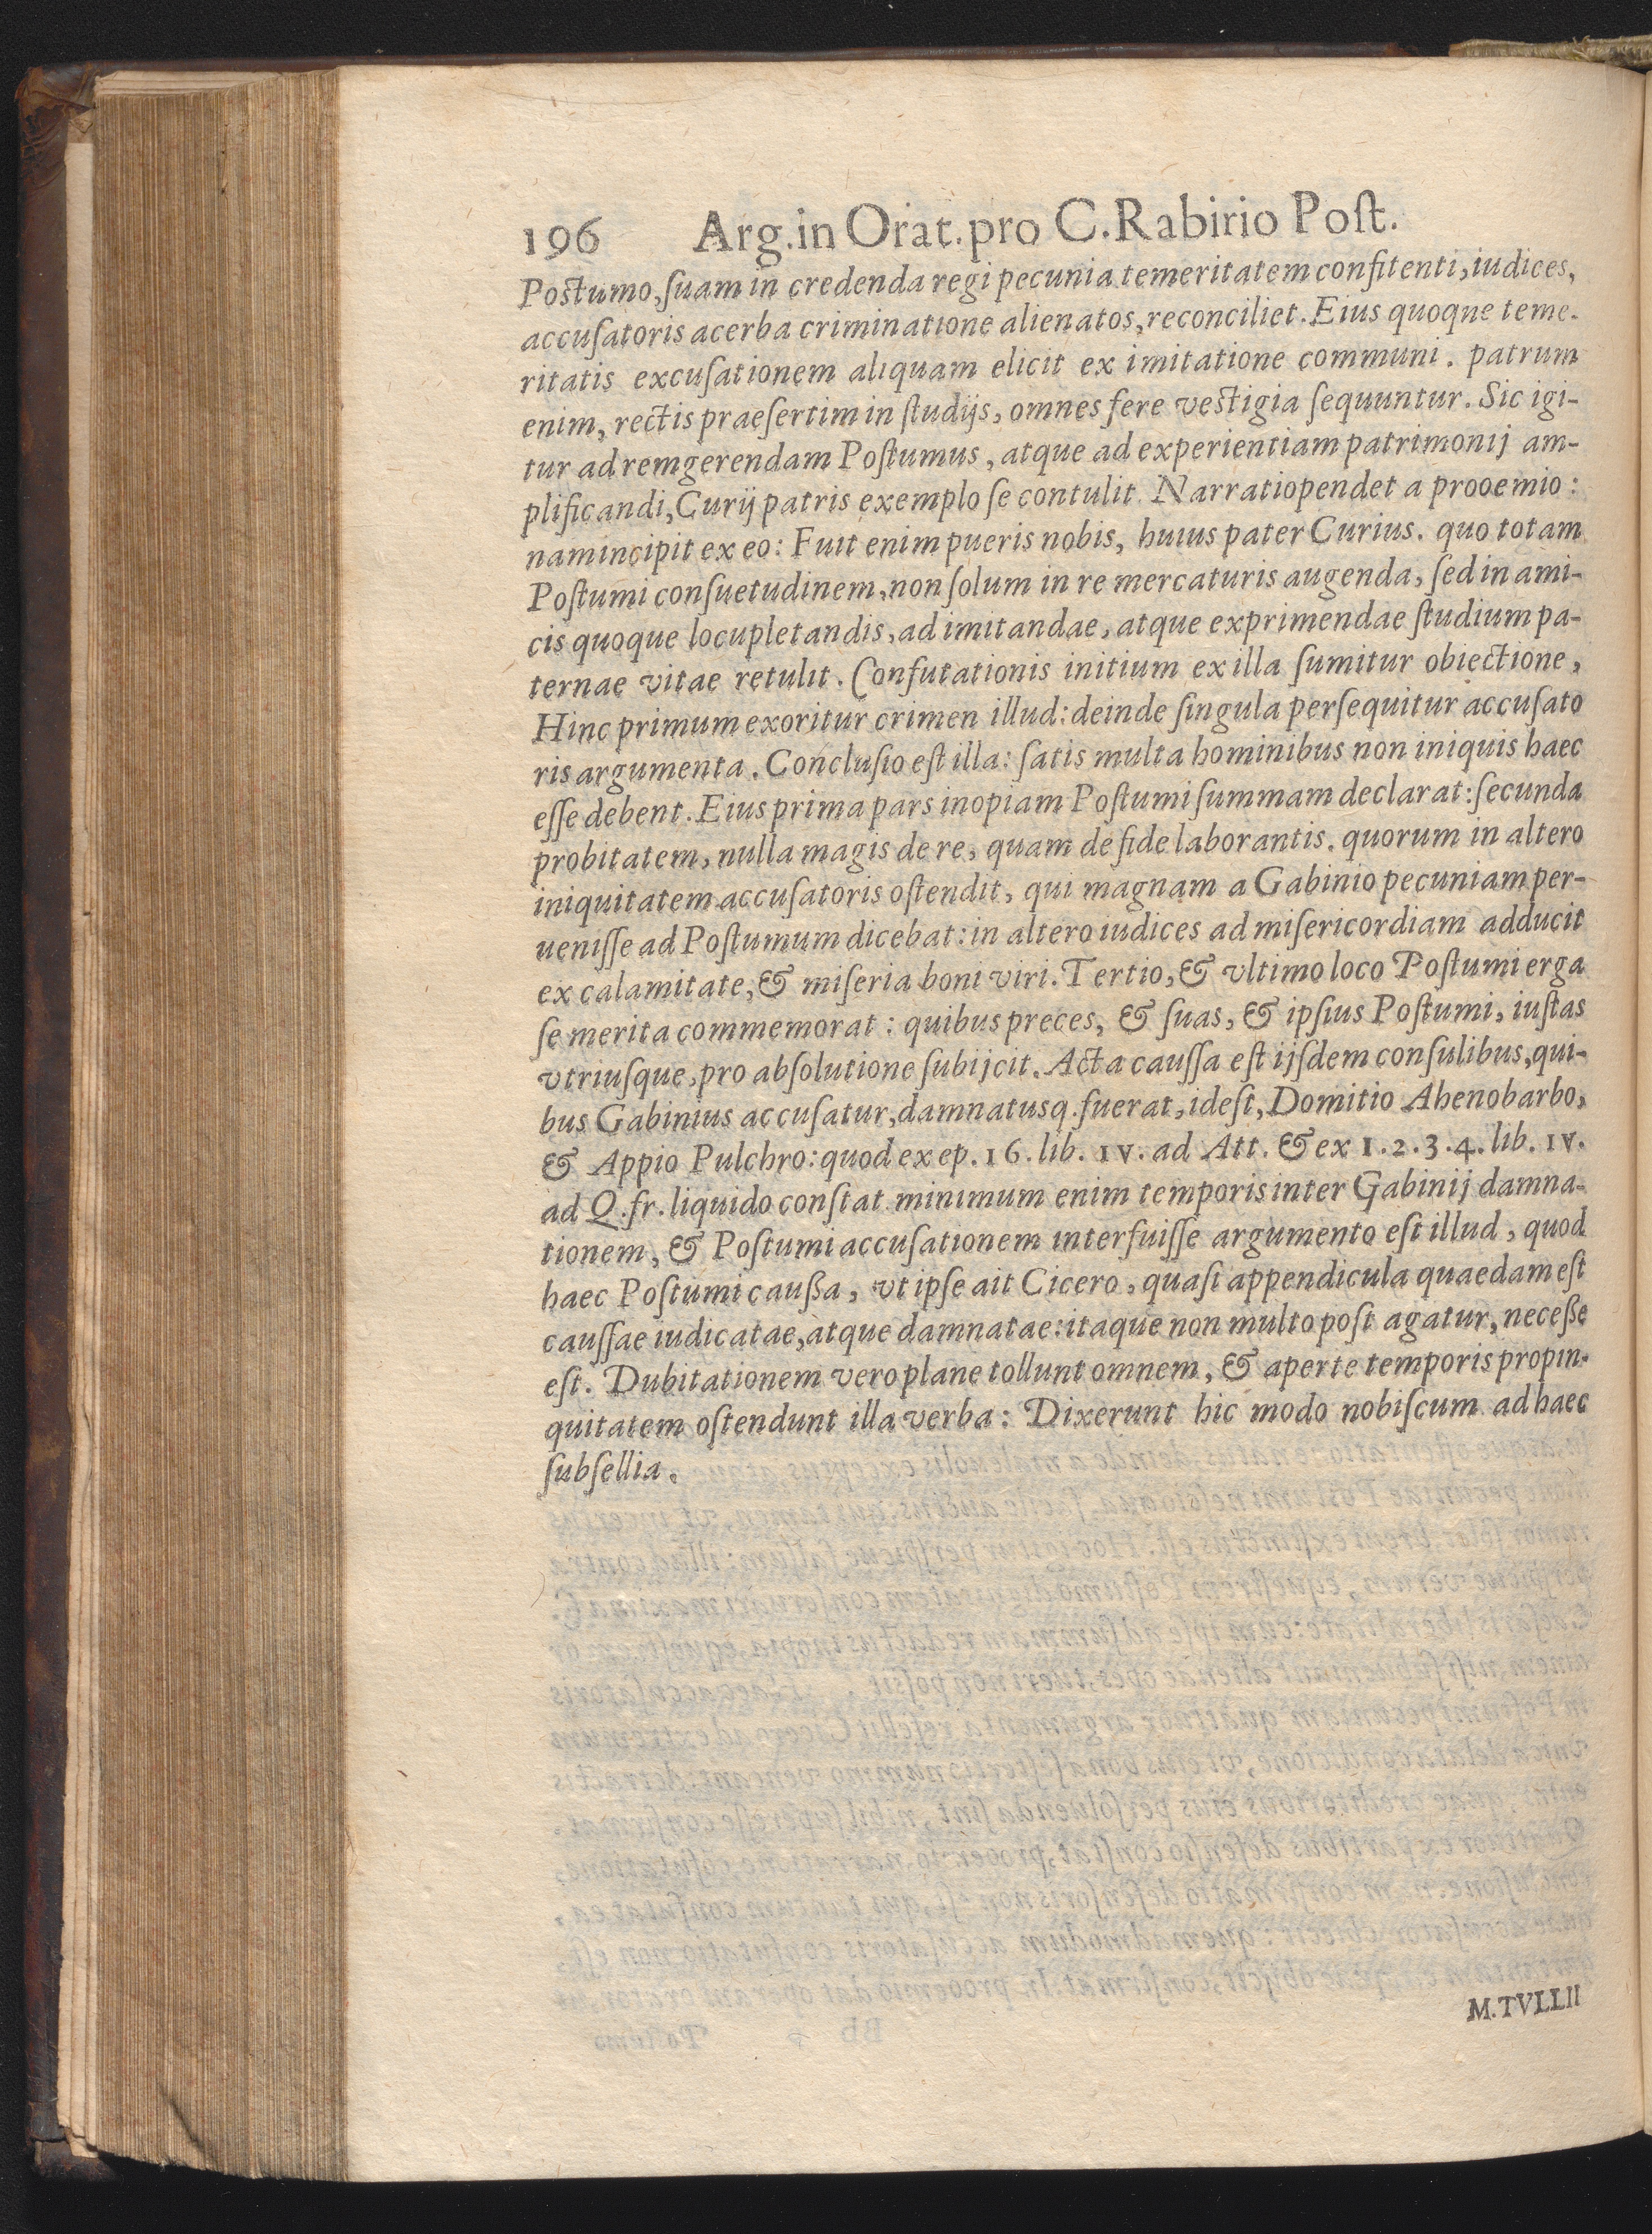 196 Arg.in Orat.pro C.Rabirio Poſt.
Poſtumo, ſuam in credenda regi pecunia temeritatem confitenti, iudices,
accuſatoris acerba criminatione alienatos, reconciliet. Eius quoque teme-
ritatis excuſationem aliquam elicit ex imitatione communi. patrum
enim, rectis praeſertim in ſtudijs, omnes fere veſtigia ſequuntur. Sic igi-
tur ad rem gerendam Poſtumus, atque ad experientiam patrimonij am-
plificandi, Curij patris exemplo ſe contulit. Narratio pendet a prooemio:
nam incipit ex eo: Fuit enim pueris nobis, huius pater Curius. quo totam
Poſtumi conſuetudinem, non ſolum in re mercaturis augenda, ſed in ami-
cis quoque locupletandis, ad imitandae, atque exprimendae ſtudium pa-
ternae vitae retulit. Confutationis initium ex illa ſumitur obiectione,
Hinc primum exoritur crimen illud: deinde ſingula perſequitur accuſato
ris argumenta. Concluſio eſt illa: ſatis multa hominibus non iniquis haec
eſſe debent. Eius prima pars inopiam Poſtumi ſummam declarat: ſecunda
probitatem, nulla magis de re, quam de fide laborantis. quorum in altero
iniquitatem accuſatoris oſtendit, qui magnam a Gabinio pecuniam per-
ueniſſe ad Poſtumum dicebat: in altero iudices ad miſericordiam adducit
ex calamitate, & miſeria boni viri. Tertio, & vltimo loco Poſtumi erga
ſe merita commemorat: quibus preces, & ſuas, & ipſius Poſtumi, iuſtas
vtriuſque, pro abſolutione ſubijcit. Acta cauſſa eſt ijſdem conſulibus, qui-
bus Gabinius accuſatur, damnatusq. fuerat, ideſt, Domitio Ahenobarbo,
& Appio Pulchro: quod ex ep. 16. lib. IV. ad Att. & ex 1. 2. 3. 4. lib. IV.
ad Q. fr. liquido conſtat. minimum enim temporis inter Gabinij damna-
tionem, & Poſtumi accuſationem interfuiſſe argumento eſt illud, quod
haec Poſtumi cauſſa, vt ipſe ait Cicero, quaſi appendicula quaedam eſt
cauſſae iudicatae, atque damnatae: itaque non multo poſt agatur, neceſſe
eſt. Dubitationem vero plane tollunt omnem, & aperte temporis propin-
quitatem oſtendunt illa verba: Dixerunt hic modo nobiſcum ad haec
ſubſellia.
M.TVLLII